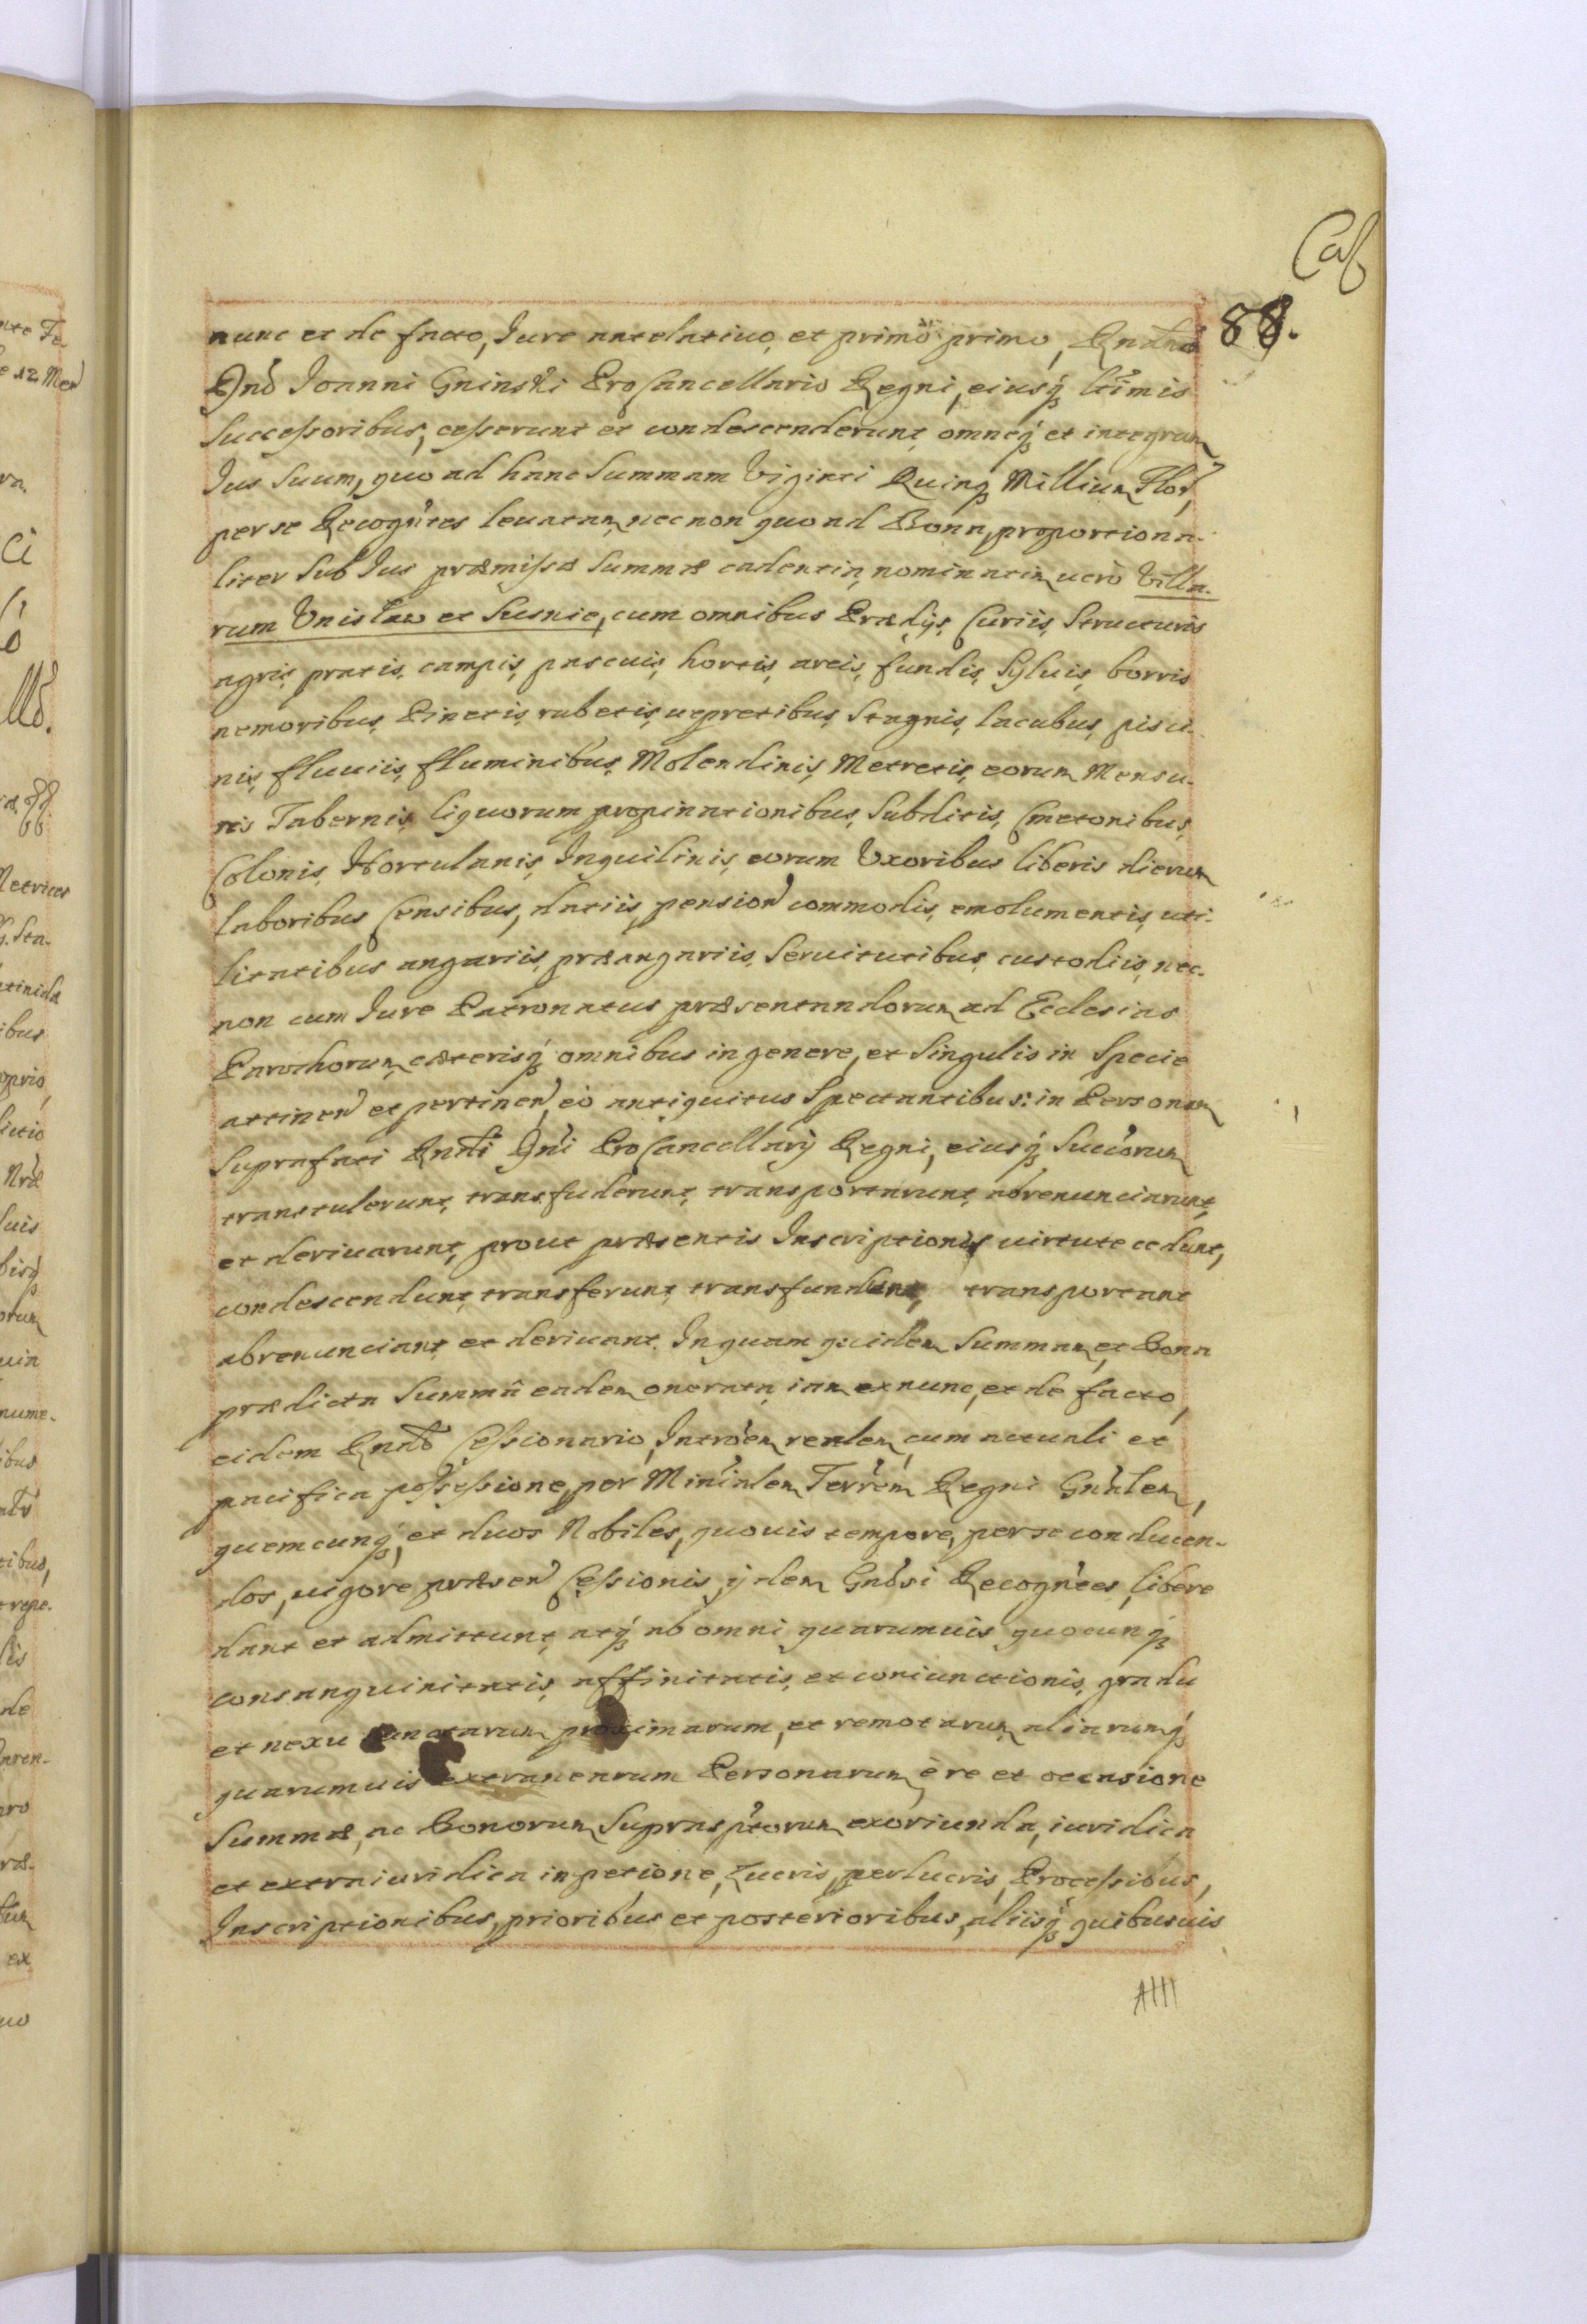 Cas
88.
nunc et de facto, Jure antelatiuo, et primo primo,
Dno Joanni Gninski ProCancellario Regni, eiusq́ ltimis
Successoribus, cesserunt et condescenderunt, omneq́ et integrum
Jus suum, quo ad hanc Summam Viginti Quinq Millium Flor,
per se Recogntes leuatam, nec non quo ad Bona, proportiona-
liter sub Jus præmissæ Summæ cadentia, nominatim uero Villa-
rum Vnislaw et Susnie, cum omnibus Prædijs, Curiis, Structuris
agris, pratis, campis, pascuis, hortis, areis, fundis, Syluis, borris
nemoribus, Pinetis, rubetis, uepretibus, Stagnis, lacubus, pisci-
nis, fluuiis, fluminibus, Molendinis, Metretis, eorum Mensu-
ris Tabernis, liquorum propinationibus, Subditis, Cmetonibus,
Colonis, Hortulanis, Inquilinis, eorum Vxoribus liberis dierum
laboribus Censibus, datiis, pension commodis, emolumentis, uti-
litatibus angariis, præangariis, Seruitutibus, custodiis, nec-
non cum Jure Patronatus præsentandorum ad Ecclesias
Parochorum, cæterisq́ omnibus in genere, et Singulis in Specie
attinen et pertinen, eò antiquitus Spectantibus: in Personam
Suprafati Rndi Dni ProCancellarij Regni, eiusq́ Succorum
transtulerunt, transfuderunt, transportarunt, abrenunciarunt,
et deriuarunt, prout præsentis Inscriptionis uirtute cedunt,
condescendunt, transferunt, transfundunt, transportant
abrenunciant, et deriuant. In quam quidem Summam, et Bona
prædicta Summâ eadem onerata, iam ex nunc, et de facto,
eidem Rndo Cessionario, Intrōem realem, cum actuali et
pacifica possessione, per Minialem Terrem Regni Gnalem,
quemcunq́, et duos Nobiles, quouis tempore, per se conducen-
dos, uigore præsen Cessionis, ijdem Gnosi Recogntes, libere
dant et admittunt, atq́ ab omni quarumuis quocunq́
consanguinitatis, affinitatis, et coniunctionis, gradu
et nexu iunctarum proximarum, et remotarum, aliarumq́
quarumuis extranearum Personarum, è re et occasione
Summæ, ac Bonorum Supraspctorum exoriunda, iuridica
et extraiuridica inpetione, Lucris, perlucris, Processibus,
Inscriptionibus, prioribus et posterioribus, aliisq́ quibusuis